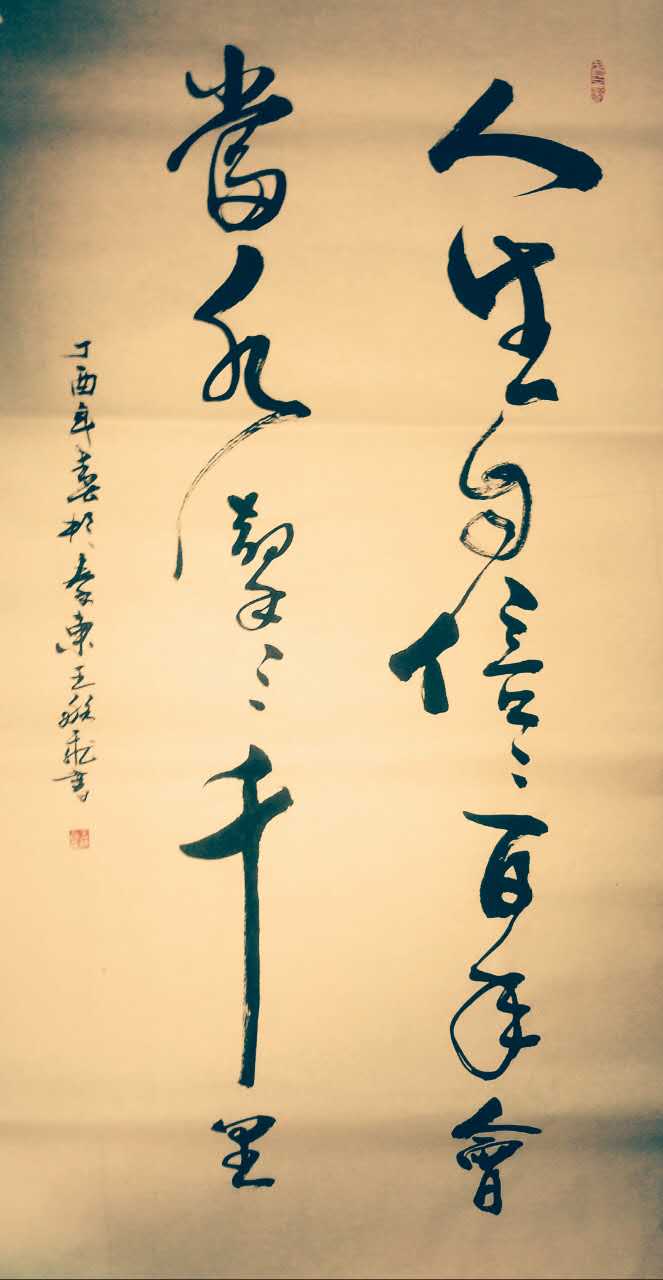 人生自信二百年會
當水擊三千里
丁酉年喜於秦東王飛書